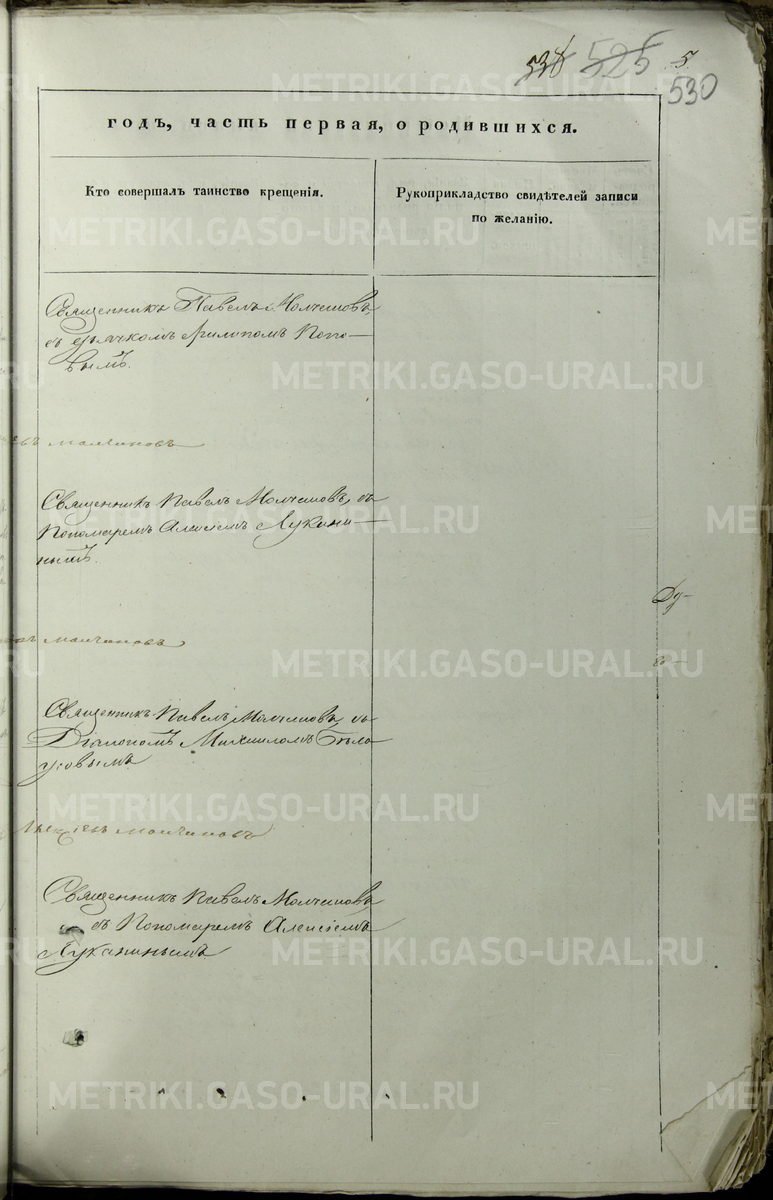 525 5
530
годъ, часть первая, о родившихся.
Кто совершалъ таинство крещенія.
Рукоприкладство свидѣтелей записи
по желанію.
Священникъ Павелъ Молчановъ
съ дьячкомъ Филипомъ Попо-
вымъ.
Молчановъ
Священникъ Павелъ Молчановъ, съ
Пономаремъ Алексіемъ Лукани-
нымъ
Молчановъ
Ду-
Священникъ Павелъ Молчановъ, съ
Діакономъ Михаиломъ Бѣло-
усовымъ
Молчановъ
Священникъ Павелъ Молчановъ
съ Пономаремъ Алексіемъ
Луканинымъ
METRIKI.GASO-URAL.RU